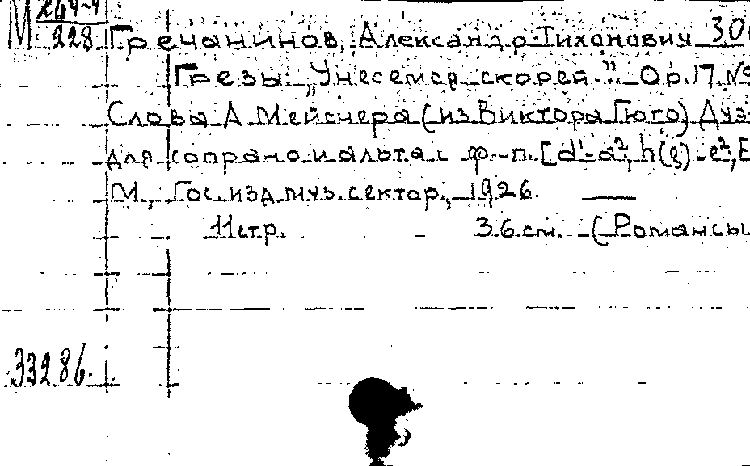 М 264-4
228
Гречанинов, Александр Тихонович 30
Грезы. „Унесемся скорей." Ор.17. №
Слова А. Мейснера (из Виктора Гюго) Дуэ
для сопрано и альта с ф.-п. [d'-a², h(g)-e², E
М., Гос. изд. муз. сектор., 1926.
11 стр. 36 см. (Романсы
33286.